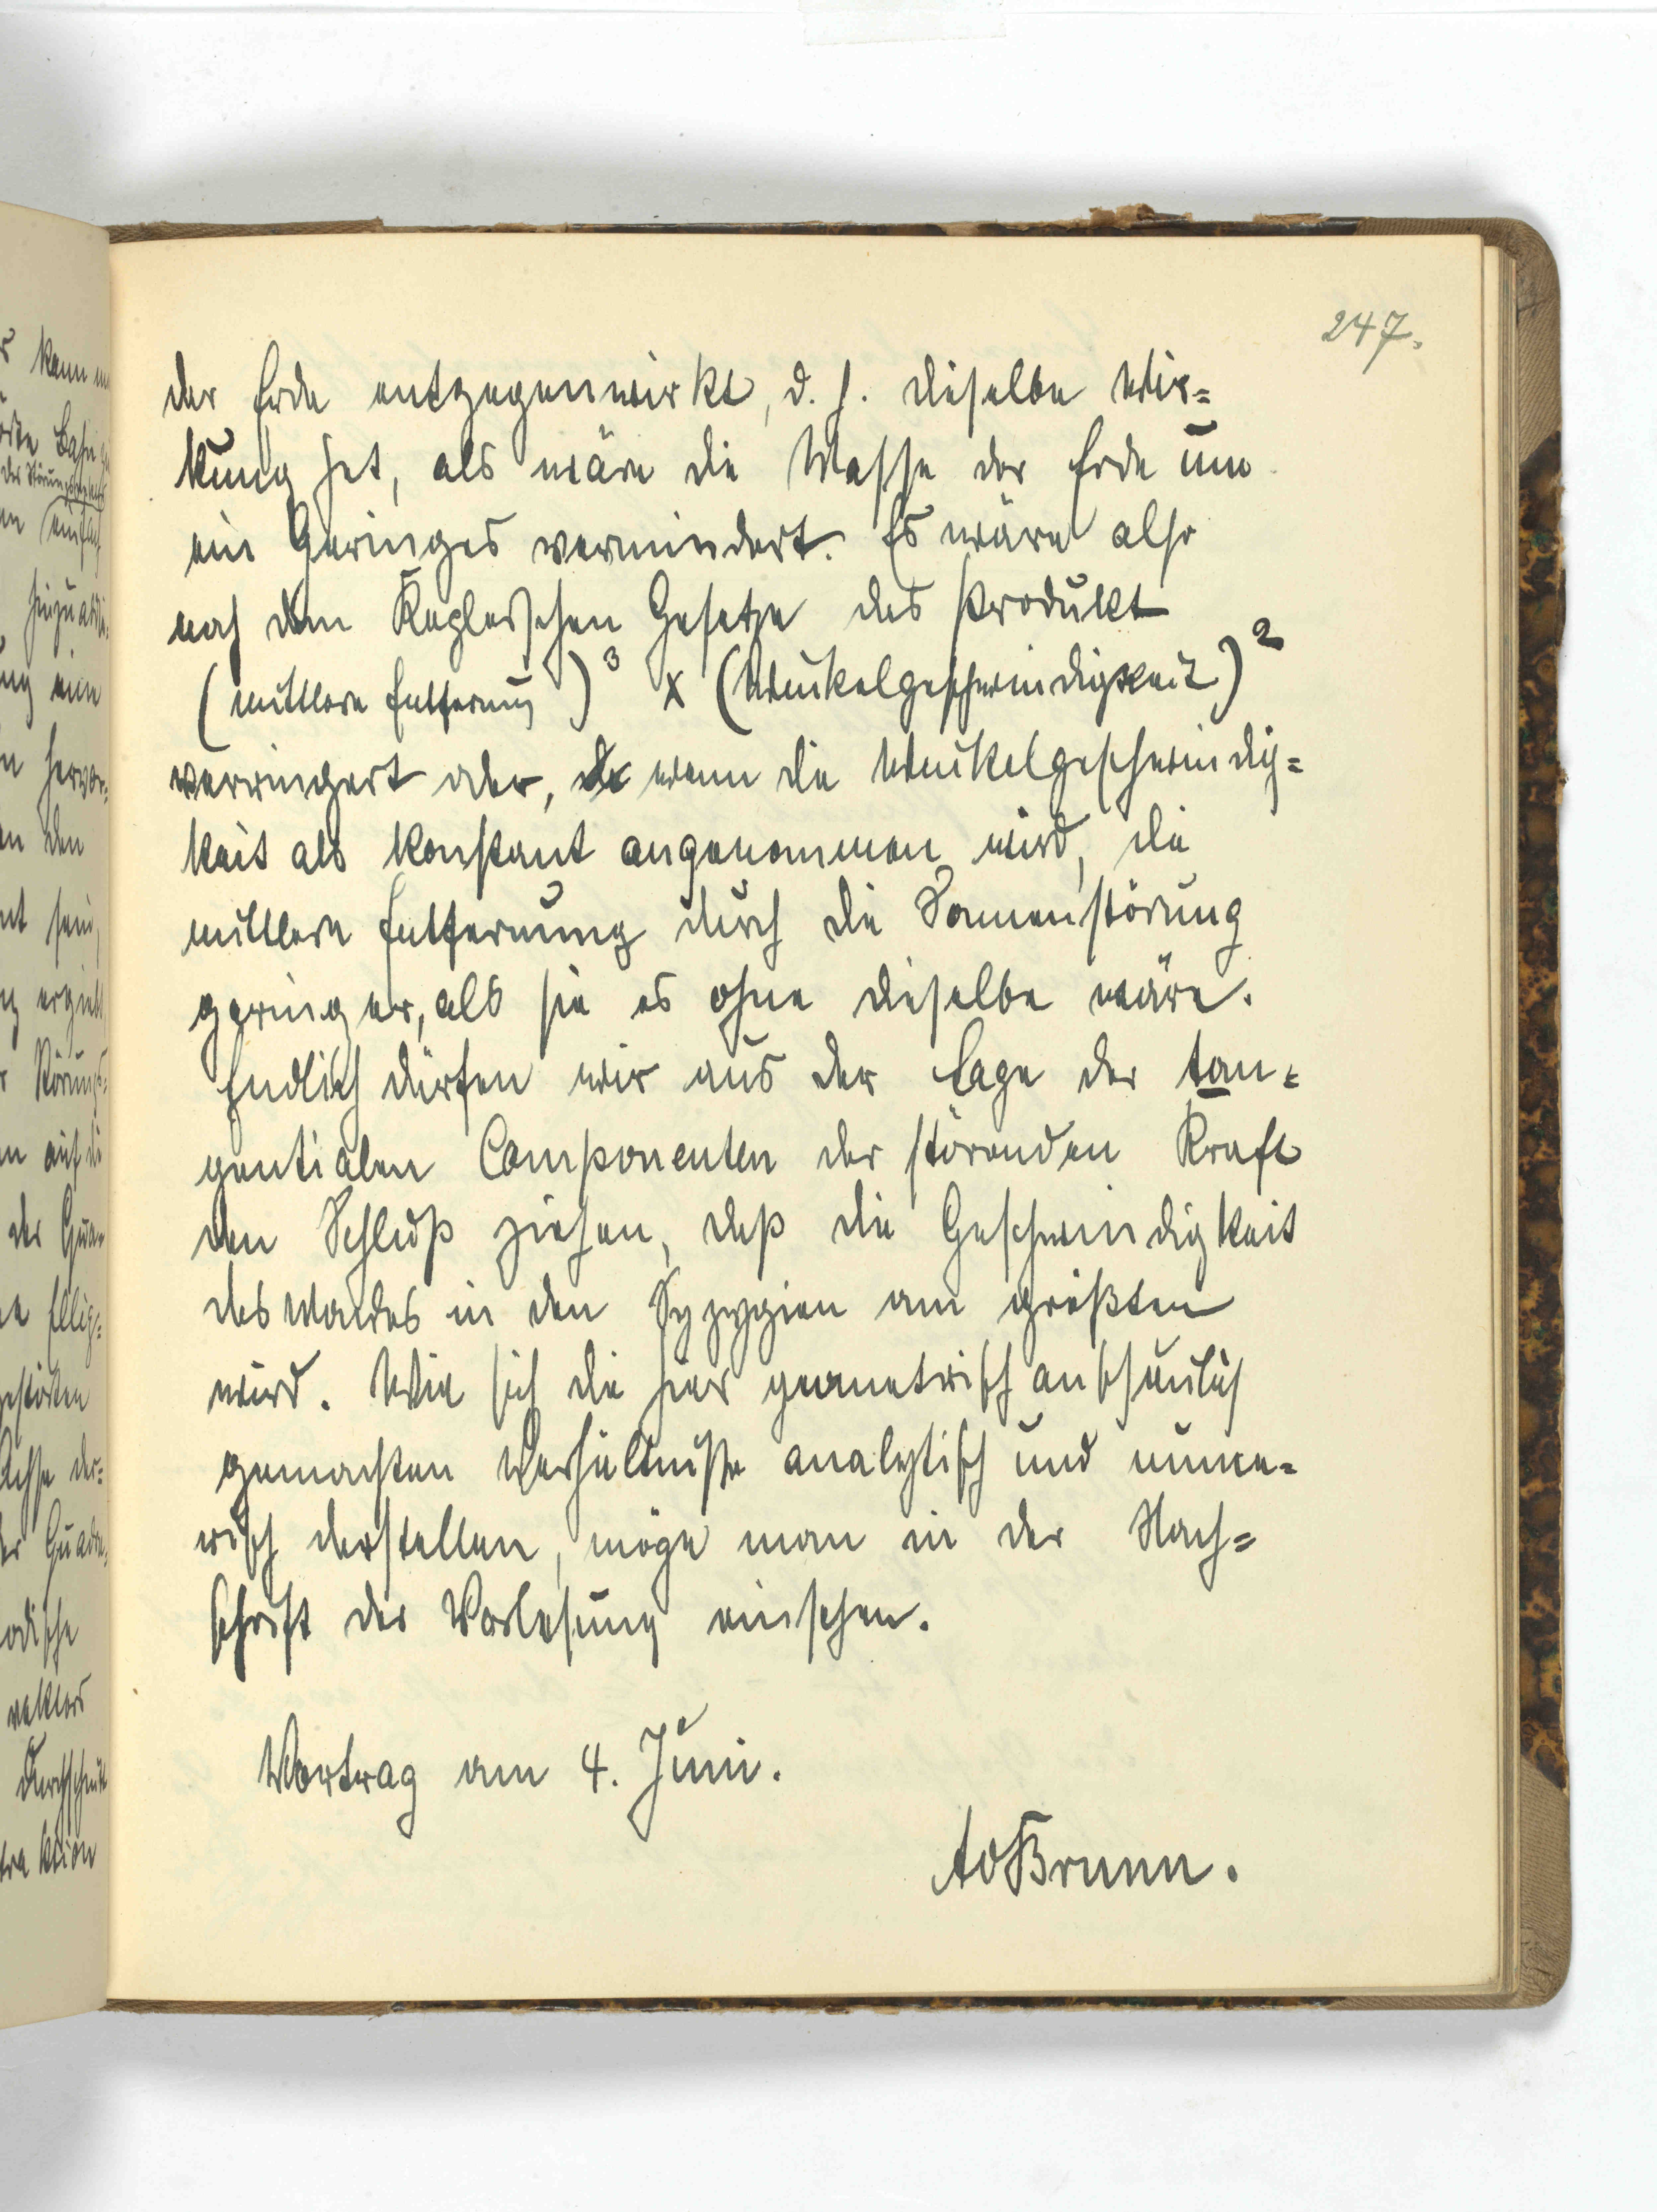 247.
der Erde entgegenwirkt, d. h. dieselbe Wir=
kung hat, als wäre die Masse der Erde um
ein Geringes vermindert. Es wäre also
nach dem Keplerschen Gesetze das Produkt
(mittlere Entfernung)³ x (Winkelgeschwindigkeit)²
verringert oder, wenn die Winkelgeschwindig=
keit als konstant angenommen wird, die
mittlere Entfernung durch die Sonnenstörung
geringer, als sie es ohne dieselbe wäre.
Endlich dürfen wir aus der Lage der tan=
gentialen Componenten der störenden Kraft
den Schluß ziehen, daß die Geschwindigkeit
des Mondes in den Syzygien am größten
wird. Wie sich die hier geometrisch anschaulich
gemachten Verhältnisse analytisch und nume=
risch darstellen, möge man in der Nach=
schrift der Vorlesung einsehen.
Vortrag am 4. Juni.
AvBrunn.